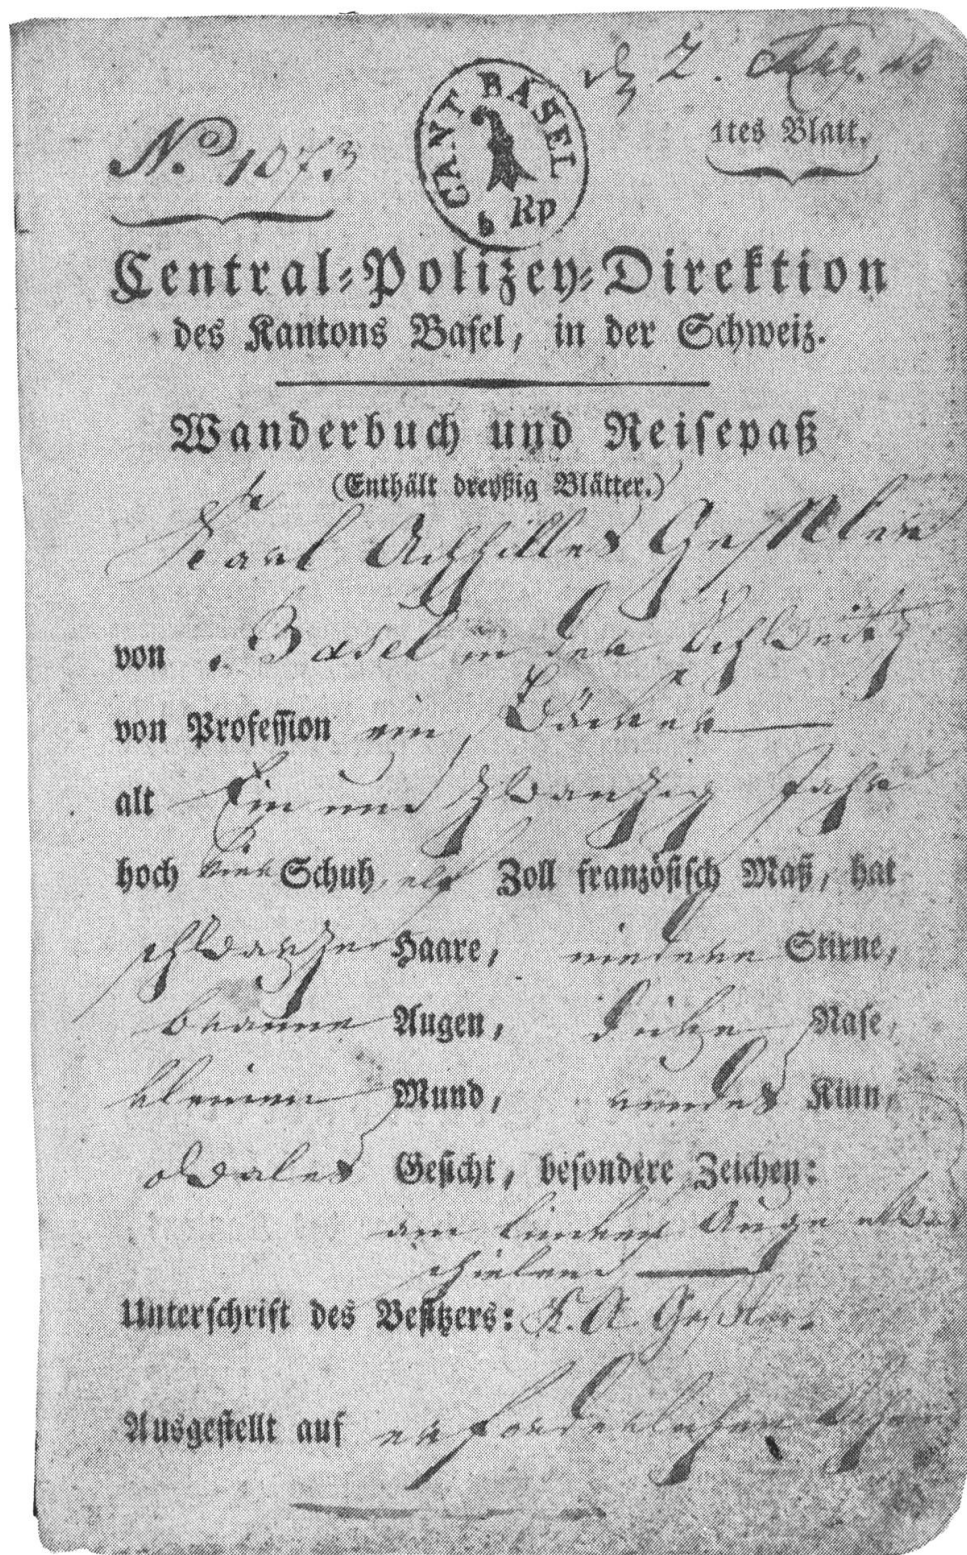 2.
No 1073
CANT BASEL
Rp
1tes Blatt.
Central-Polizey-Direktion
des Kantons Basel, in der Schweiz.
Wanderbuch und Reisepaß
(Enthält dreyßig Blätter.)
Karl Achilles
von Basel in der Schweitz
von Profession ein Bäcker
alt Ein und zwanzig Jahr
hoch vier Schuh, elf Zoll französisch Maß, hat
schwarze Haare, niedere Stirne,
braune Augen, dicke Nase,
kleinen Mund, rundes Kinn,
ovales Gesicht, besondere Zeichen:
am linken Auge etwas
schielend
Unterschrift des Besitzers: K. A. Geßler.
Ausgestellt auf erforderlichen